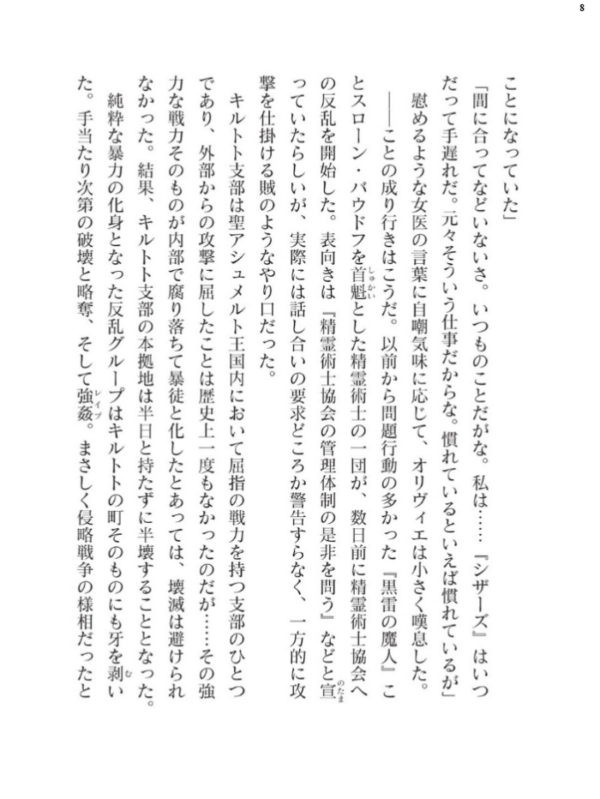 8
ことになっていた」
「間に合ってなどいないさ。いつものことだがな。私は……『シザーズ』はいつ
だって手遅れだ。元々そういう仕事だからな。慣れているといえば慣れているが」
慰めるような女医の言葉に自嘲気味に応じて、オリヴィエは小さく嘆息した。
――ことの成り行きはこうだ。以前から問題行動の多かった『黒雷の魔人』こ
とスローン・バウドフを首魁とした精霊術士の一団が、数日前に精霊術士協会へ
しゅかい
の反乱を開始した。表向きは『精霊術士協会の管理体制の是非を問う』などと宣
のたま
っていたらしいが、実際には話し合いの要求どころか警告すらなく、一方的に攻
撃を仕掛ける賊のようなやり口だった。
キルトト支部は聖アシュメルト王国内において屈指の戦力を持つ支部のひとつ
であり、外部からの攻撃に屈したことは歴史上一度もなかったのだが……その強
力な戦力そのものが内部で腐り落ちて暴徒と化したとあっては、壊滅は避けられ
なかった。結果、キルトト支部の本拠地は半日と持たずに半壊することとなった。
純粋な暴力の化身となった反乱グループはキルトトの町そのものにも牙を剥い
む
た。手当たり次第の破壊と略奪、そして強姦。まさしく侵略戦争の様相だったと
レイプ